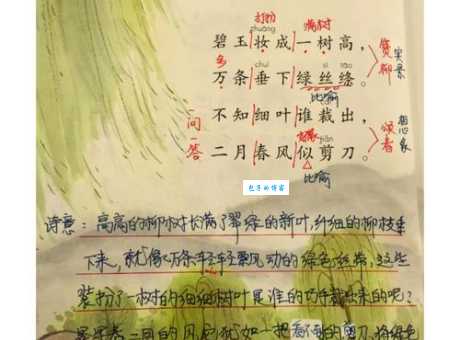 打扮 满树
zhuāng
碧玉妆成一树高，
多 chuí sī tāo
万条垂下绿丝绦。
比喻
赞柳 实景
不知细叶谁裁出，
jiǎn
二月春风似剪刀。
比喻
问 答
颂春 想象
包子的博客
诗意：高高的柳树长满了翠绿的新叶，纤细的柳枝垂
下来，就像万条轻轻飘动的绿色丝带。这些
装扮了一树的细细树叶是谁的巧手裁出来的呢？
二月的风 如一把 剪刀，将绿色